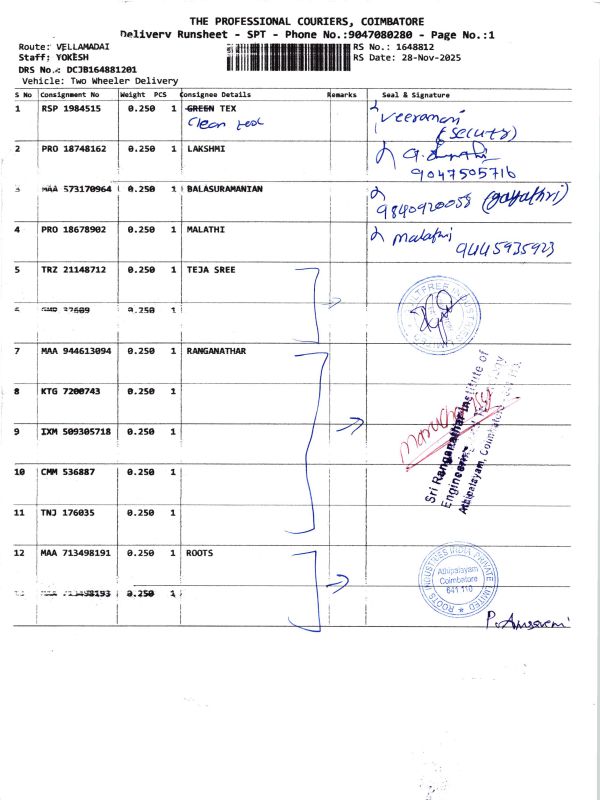 THE PROFESSIONAL COURIERS, COIMBATORE
Delivery Runsheet - SPT - Phone No.:9047080280 - Page No.:1
Route: VELLAMADAI
RS No.: 1648812
Staff: YOKESH
RS Date: 28-Nov-2025
DRS No.: DCJB164881201
Vehicle: Two Wheeler Delivery
S No Consignment No Weight PCS Consignee Details Remarks Seal & Signature
1 RSP 1984515 0.250 1 GREEN TEX
Clean
Veeramani
2 PRO 18748162 0.250 1 LAKSHMI
9047505716
3 MAA 573170964 0.250 1 BALASURAMANIAN
9840920058 (gayathri)
4 PRO 18678902 0.250 1 MALATHI
Malathi
9445935923
5 TRZ 21148712 0.250 1 TEJA SREE
6 0.250 1
7 MAA 944613094 0.250 1 RANGANATHAR
8 KTG 7200743 0.250 1
9 IXM 509305718 0.250 1
Sri Ranganathar Institute of
Engineering
Athipalayam, Coimbatore
10 CMM 536887 0.250 1
11 TNJ 176035 0.250 1
12 MAA 713498191 0.250 1 ROOTS
ROOTS INDUSTRIES INDIA PRIVATE LIMITED
Athipalayam
Coimbatore
641 110
713498193 0.250 1